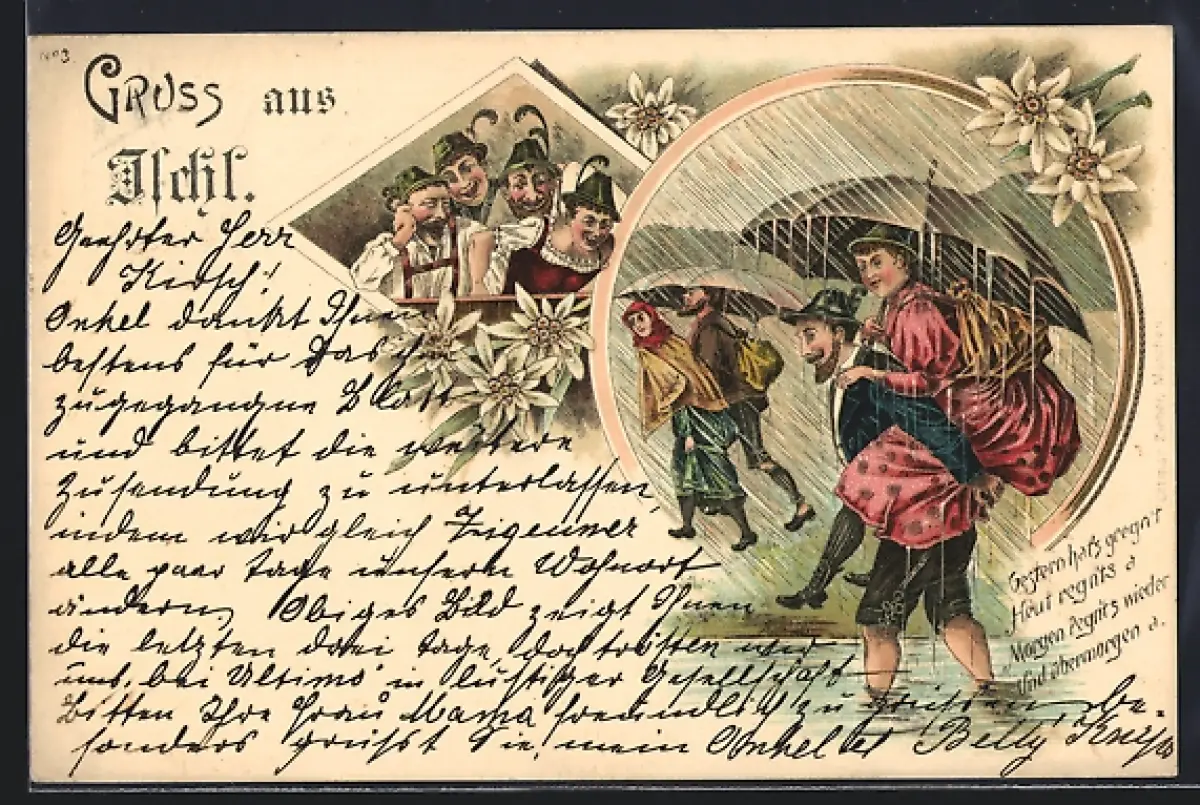 1003
Gruss aus
Ischl.
Geehrter Herr
Kirsch!
Onkel dankt Ihnen
bestens für das ihm
zugegangne Blatt
und bittet die weitere
Zusendung zu unterlassen,
indem wir gleich Zigeuner
alle paar Tage unsern Wohnort
ändern. Obiges Bild zeigt Ihnen
die letzten drei Tage, doch trösten wir
uns, bei Ultimo in lustiger Gesellschaft
Bitten Ihre Frau Mama freundlich zu grüssen, be-
sonders grüsst Sie, mein Onkel Betty
Gestern hat's geregn't
Heut regn'ts a
Morgen Regn'ts wieder
Und übermorgen a.